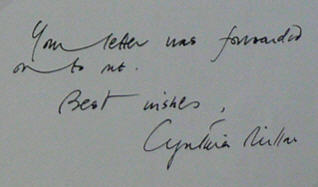 Your letter was forwarded
on to me.
Best wishes,
Cynthia Millar